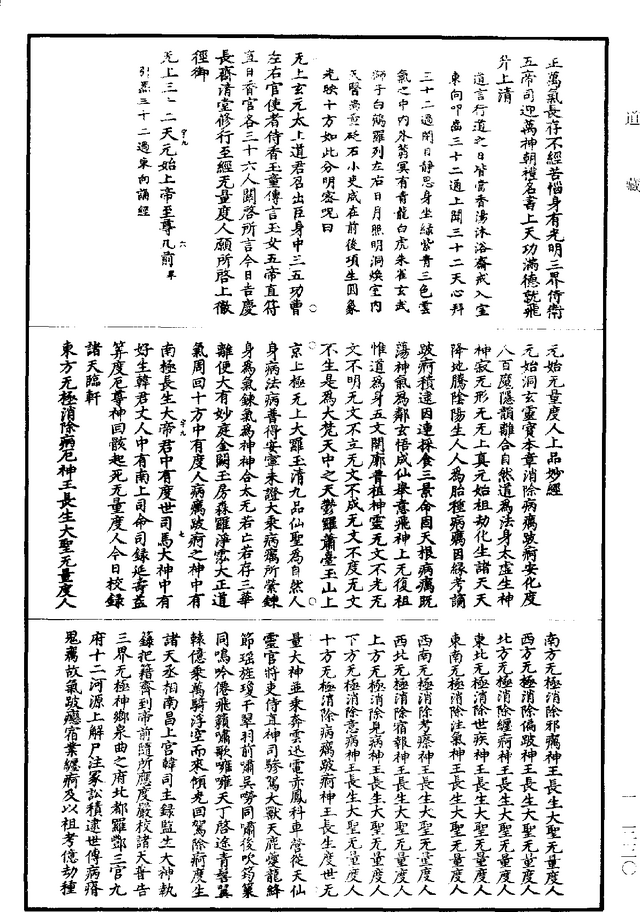 正萬氣長存不經苦惱身有光明三界侍衛
五帝司迎萬神朝禮名書上天功滿德就飛
昇上清
道言行道之日皆當香湯沐浴齋戒入室
東向叩齒三十二通上聞三十二天心拜
三十二過閉目靜思身坐綠紫青三色雲
氣之中內外蓊冥有青龍白虎朱雀玄武
獅子白鶴羅列左右日月照明洞煥室內
光映十方如此分明密呪曰
无上玄元太上道君召出臣身中三五功曹
左右官使者侍香玉童傳言玉女五帝直符
直日香官各三十六人關啓所言今日吉慶
長齋清堂修行至經无量度人願所啓上徹
徑御
无上三十二天元始上帝至尊几前
引炁三十二過東向誦經
元始无量度人上品妙經
元始洞玄靈寶本章消除病癘跛痾安化度
八百魔隱韻離合自然道為法身太虛生神
神寂无形无无上真元始祖劫化生諸天天
降地騰陰陽生人人為胎種病癘因緣考謫
跛痾積逮因連採食三景命固天根病癘既
蕩神氣為鄰玄悟成仙舉意飛神上无復祖
惟道為身五文開廓普植神靈无文不光无
文不明无文不立无文不成无文不度无文
不生是為大梵天中之天鬱羅蕭臺玉山上
京上極无上大羅玉清九品仙聖為自然人
身病法病普得安寧未證大乘病癘所縈鍊
身為氣鍊氣為神神合太元若亡若存三華
離便大有妙庭金闕玉房森羅淨雲大正道
氣周回十方中有度人病癘跛痾之神中有
南極長生大帝君中有度世司馬大神中有
好生韓君丈人中有南上司命司錄延壽益
筭度厄尊神回骸起死无量度人今日校錄
諸天臨軒
東方无極消除病厄神王長生大聖无量度人
南方无極消除邪癘神王長生大聖无量度人
西方无極消除偏跛神王長生大聖无量度人
北方无極消除纏痾神王長生大聖无量度人
東北无極消除世疾神王長生大聖无量度人
東南无極消除注氣神王長生大聖无量度人
西南无極消除考瘵神王長生大聖无量度人
西北无極消除宿報神王長生大聖无量度人
上方无極消除見病神王長生大聖无量度人
下方无極消除意病神王長生大聖无量度人
十方无極消除病癘跛痾神王長生度世无
量大神並乘奔雲迅電赤鳳科車營從天仙
靈官將吏侍直神司驂駕大獸天鹿變龍絳
節瑶旌瓊千翠羽前嘯吳嘮同嘯後吹筠篥
同鳴吟倦飛籟嘯歌嗺嗺天丁啓途青髻翼
轅億乘萬騎浮空而來傾光回駕除痾度生
諸天丞相南昌上官韓司主錄監生大神執
籙把籍齊到帝前隨所應度嚴校諸天普告
三界无極神鄉泉曲之府北都羅酆三官九
府十二河源上解尸注冢訟積逮世傳病瘠
鬼癘故氣跛癃宿業纏痾及以祖考億劫種
道藏
一—三三〇